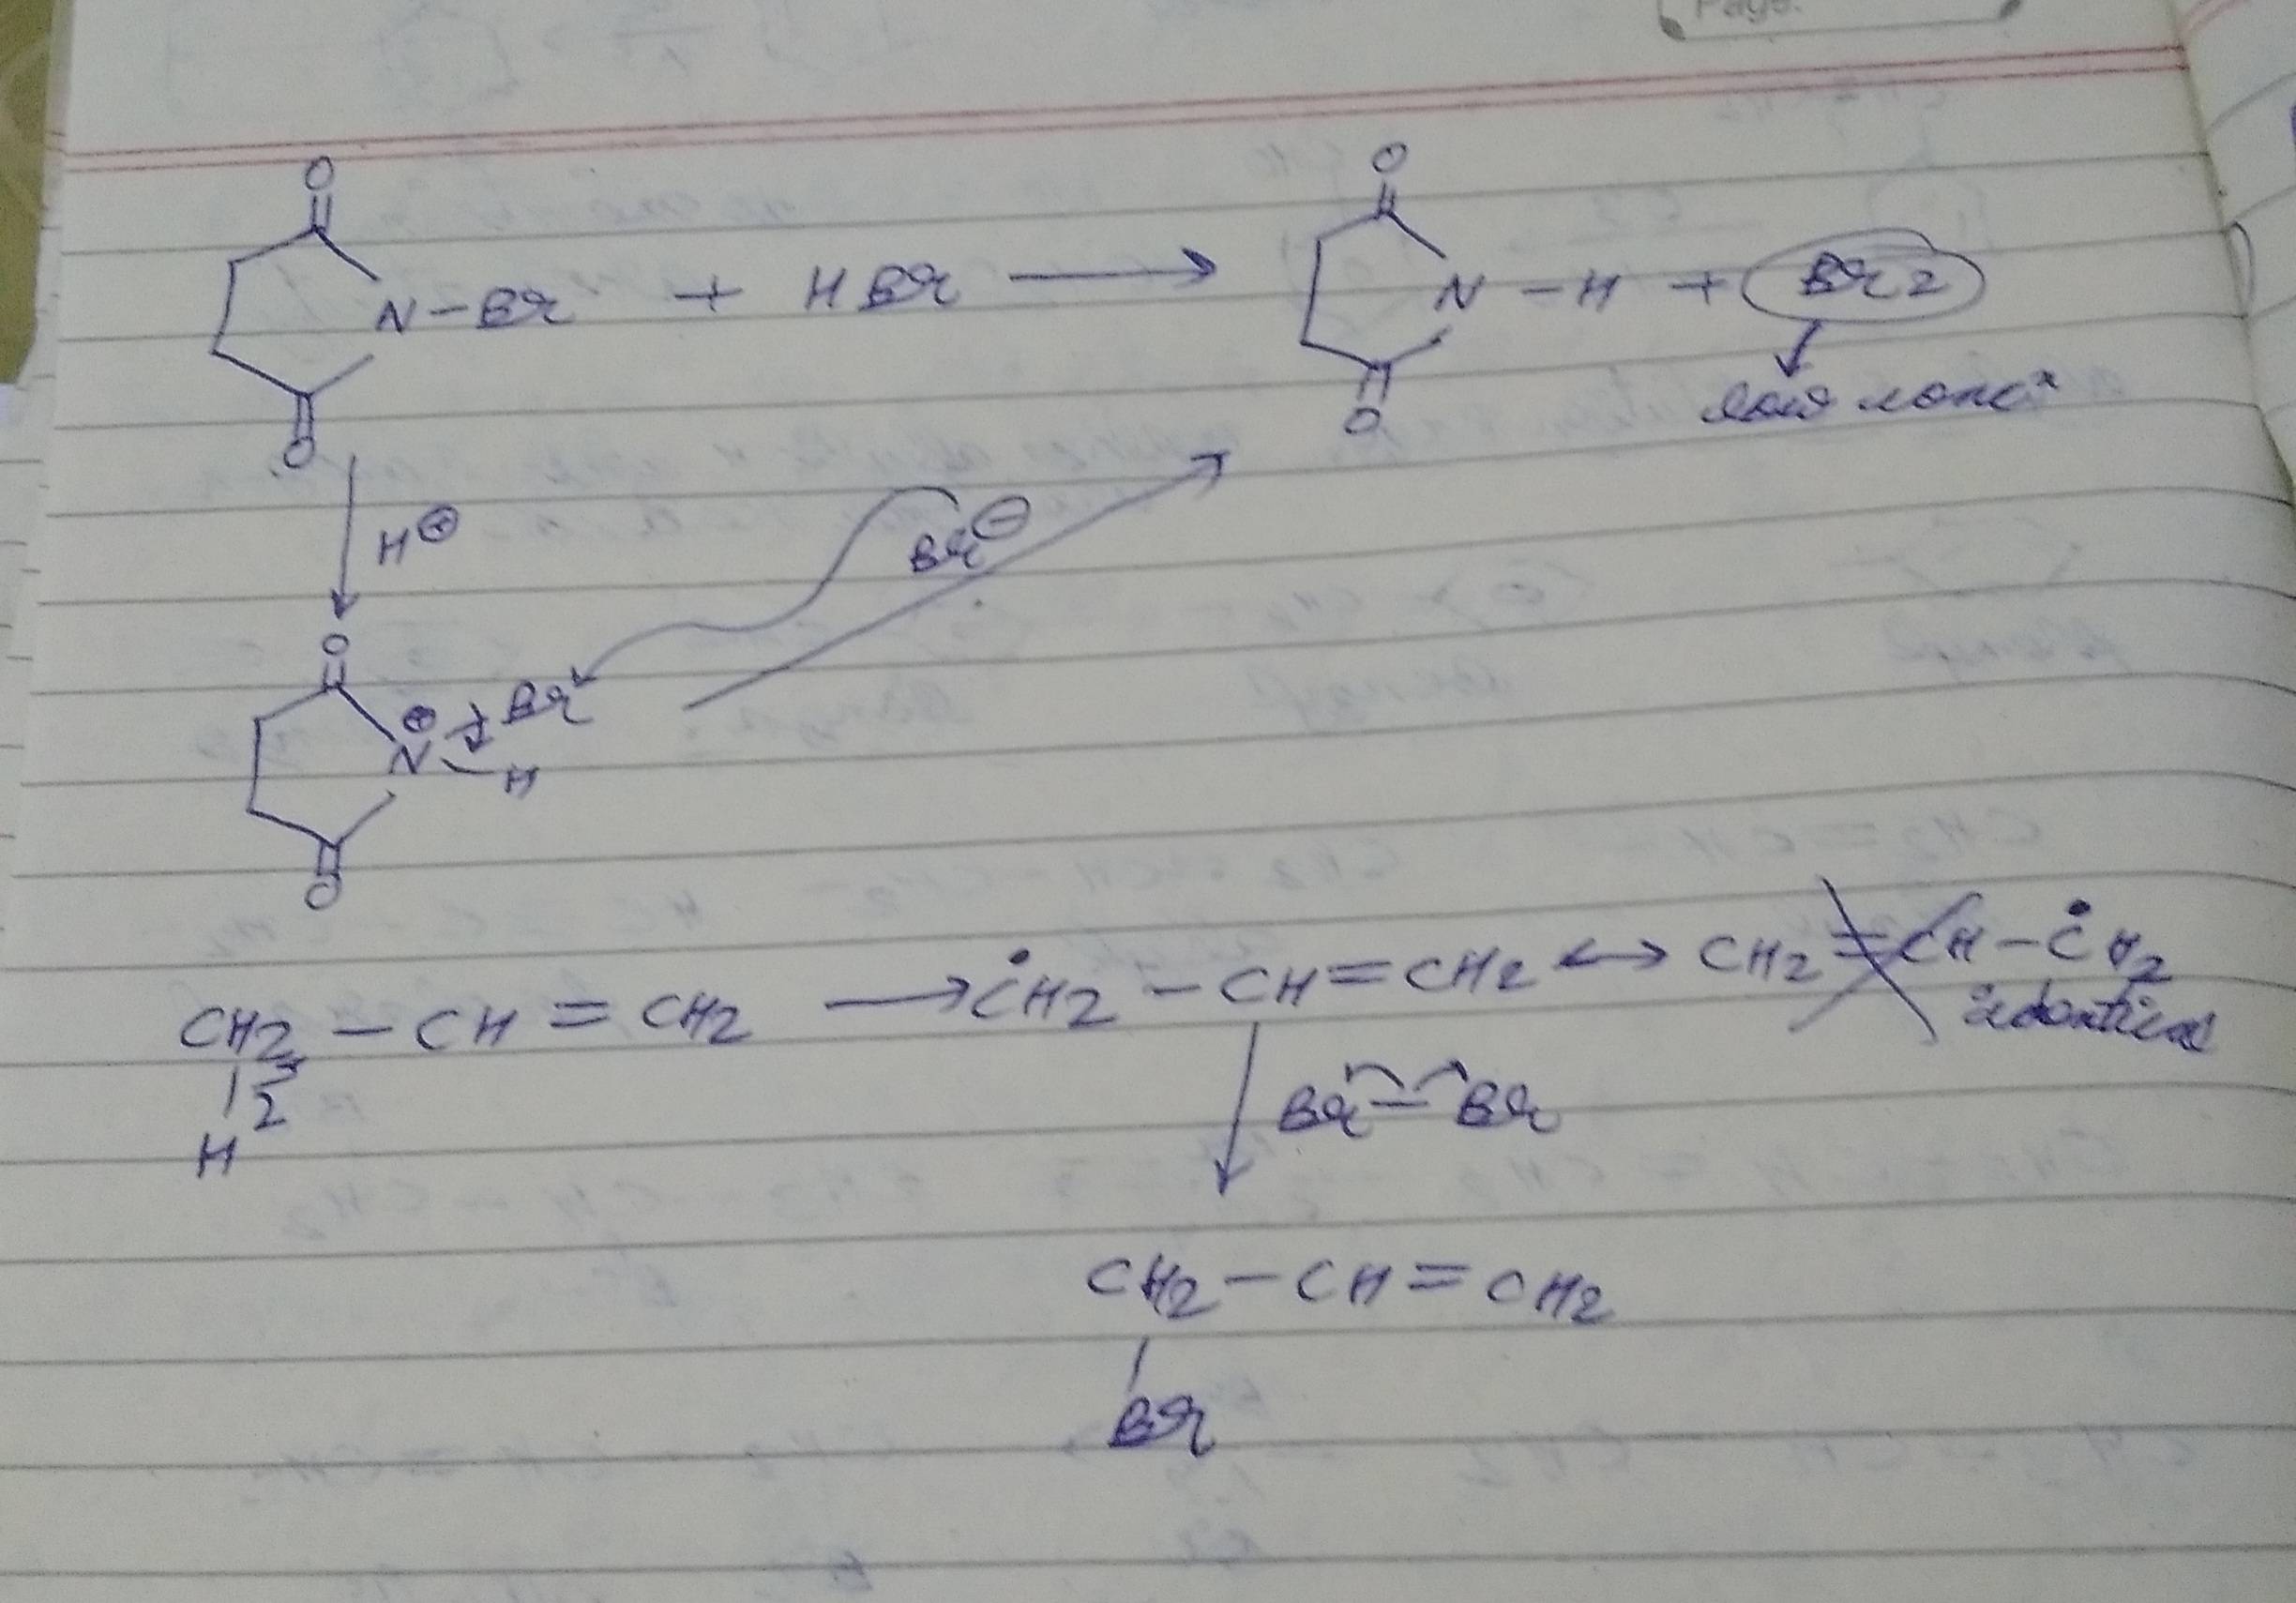 Page:
O
O
N-Br + HBr → N-H + Br2
O
O
low concn
H⊕
Br⊖
O
⊕
N-Br
H
O
CH2-CH=CH2 → ĊH2-CH=CH2 ↔ CH2=CH-ĊH2
identical
H
Br-Br
CH2-CH=CH2
Br